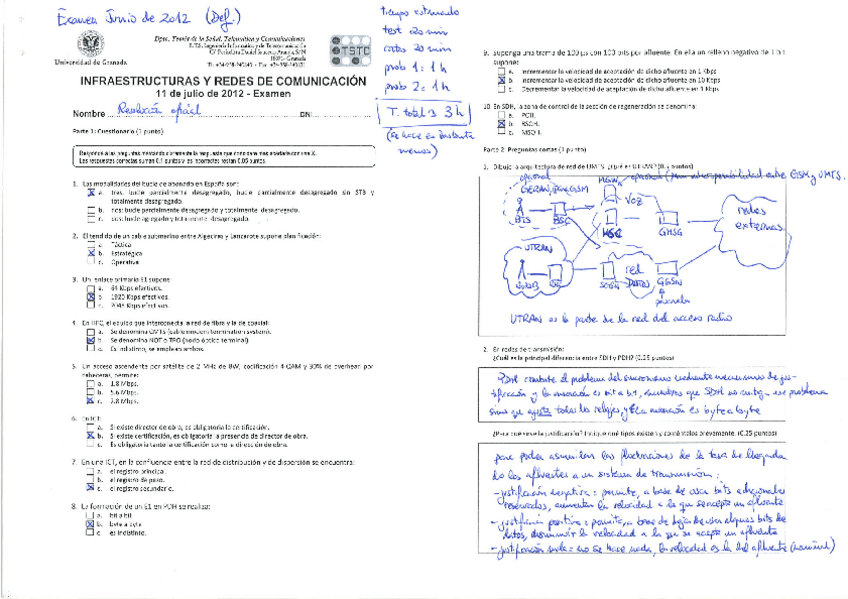 Examen Junio de 2012 (Def.)
Universidad de Granada
Dpto. Teoría de la Señal, Telemática y Comunicaciones
TSTC
INFRAESTRUCTURAS Y REDES DE COMUNICACIÓN
11 de julio de 2012 - Examen
Nombre Resolución oficial DNI
Parte 1: Cuestionario (1 punto)
Las respuestas correctas suman 0.1 puntos y las incorrectas restan 0.05 puntos.
1. Las modalidades del bucle de abonado en España son:
X a. tres: bucle parcialmente desagregado, bucle parcialmente desagregado sin STB y totalmente desagregado.
b. dos: bucle parcialmente desagregado y totalmente desagregado.
2. El tendido de un cable submarino entre Algeciras y Lanzarote supone planificación:
a. Táctica
X b. Estratégica
c. Operativa
3. Un enlace primario E1 supone:
a. 64 Kbps efectivos.
X b. 1920 Kbps efectivos.
c. 2048 Kbps efectivos.
4. En HFC, el equipo que interconecta la red de fibra y la de coaxial:
a. Se denomina CMTS (cable modem termination system).
X b. Se denomina NOT o TRO (nodo óptico terminal).
c. Es indistinto, se emplean ambos.
5. Un acceso ascendente por satélite de 2 MHz de BW, codificación 4-QAM y 30% de overhead por cabeceras, permite:
a. 1.8 Mbps.
b. 5.6 Mbps.
X c. 2.8 Mbps.
6. En ICT:
a. Si existe director de obra, es obligatoria la certificación.
X b. Si existe certificación, es obligatoria la presencia de director de obra.
c. Es obligatoria tanto la certificación como la dirección de obra.
7. En una ICT, en la confluencia entre la red de distribución y de dispersión se encuentra:
a. el registro principal.
b. el registro de paso.
X c. el registro secundario.
8. La formación de un E1 en PDH se realiza:
a. bit a bit
X b. byte a byte
c. es indistinto.
tiempo estimado
test 20 min
cortas 20 min
prob 1 = 1 h
prob 2 = 1 h
T. total ≈ 3 h
(se hace en bastante
menos)
9. Suponga una trama de 100 μs con 100 bits por afluente. En ella un relleno negativo de 1 bit supone:
a. Incrementar la velocidad de aceptación de dicho afluente en 1 Kbps
X b. Incrementar la velocidad de aceptación de dicho afluente en 10 Kbps
c. Decrementar la velocidad de aceptación de dicho afluente en 1 Kbps
10. En SDH, la zona de control de la sección de regeneración se denomina:
a. POH.
X b. RSOH.
c. MSOH.
Parte 2: Preguntas cortas (1 punto)
1. Dibuje la arquitectura de red de UMTS. ¿Qué es UTRAN?
opcional
GERAN, GSM
BTS
BSC
voz
MSC
GMSC
redes
externas
UTRAN
NodoB
red
DATOS
SGSN
GGSN
UTRAN es la parte de la red del acceso radio
2. En redes de transmisión:
¿Cuál es la principal diferencia entre SDH y PDH? (0.25 puntos)
PDH combate el problema del sincronismo mediante mecanismos de jus-
tificación y la inserción es bit a bit, mientras que SDH no
sino que ajusta todos los relojes, y la inserción es byte a byte
¿Para qué se usa la justificación? Indique qué tipos existen y coméntelos brevemente. (0.25 puntos)
para poder asumir las fluctuaciones de la tasa de llegada
de los afluentes a un sistema de transmisión:
- justificación negativa: permite, a base de usar bits adicionales
reservados, aumentar la velocidad a la que se acepta un afluente
- justificación positiva: permite, a base de dejar de usar algunos bits de
datos, disminuir la velocidad a la que se acepta un afluente
- justificación nula: no se hace nada, la velocidad es la del afluente (nominal)